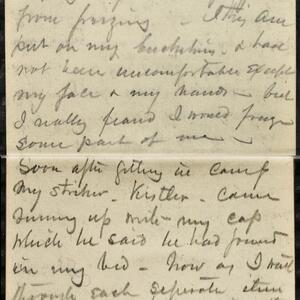 from freezing - I this am
put on my buckskins & had
not been uncomfortable except
my face & my hands - but
I really feared I would freeze
some part of me -
Soon after getting in camp
My striker - Kistler - came
running up with my cap
which he said he had found
in my bed - Now as I went
through each separate item